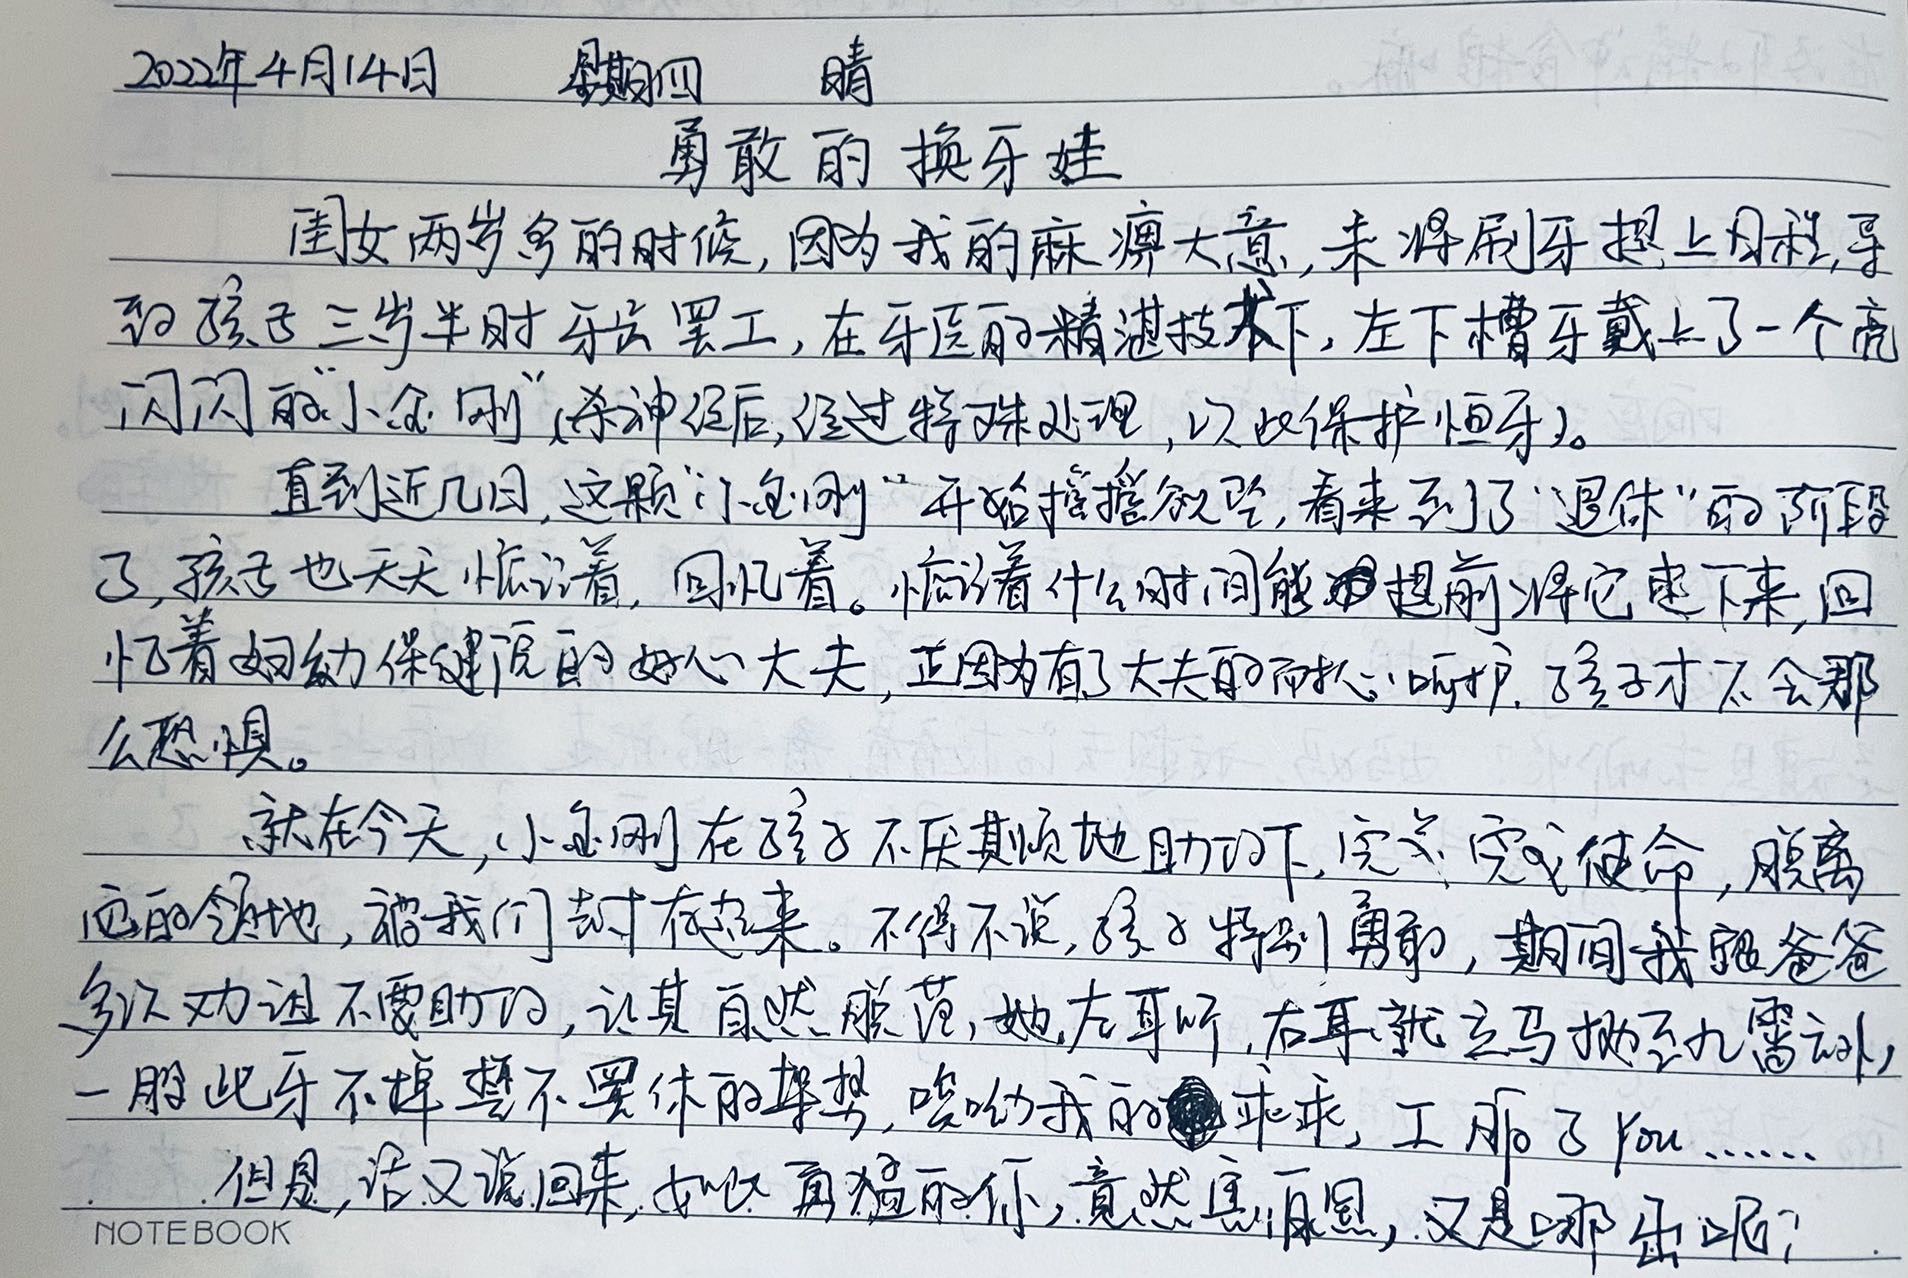 2022年4月14日 星期四 晴
勇敢的换牙娃
闺女两岁多的时候,因为我的麻痹大意,未将刷牙提上日程,导
致孩子三岁半时牙齿罢工,在牙医的精湛技术下,左下槽牙戴上了一个亮
闪闪的“小金刚”(杀神经后,经过特殊处理,以此保护恒牙)。
直到近几日,这颗“小金刚”开始摇摇欲坠,看来到了“退休”的阶段
了,孩子也天天惦记着,回忆着。惦记着什么时间能提前将它弄下来,回
忆着妇幼保健院的好心大夫,正因为有了大夫的耐心呵护,孩子才不会那
么恐惧。
就在今天,小金刚在孩子不厌其烦地助攻下,完美完成使命,脱离
它的领地,被我们封存起来。不得不说,孩子特别勇敢,期间我跟爸爸
多次劝说不要助攻,让其自然脱落,她左耳听,右耳就立马抛至九霄云外,
一股此牙不掉誓不罢休的架势,哎呦我的乖乖,I服了You……
但是,话又说回来,如此勇猛的你,竟然害怕黑,又是哪出呢?
NOTEBOOK